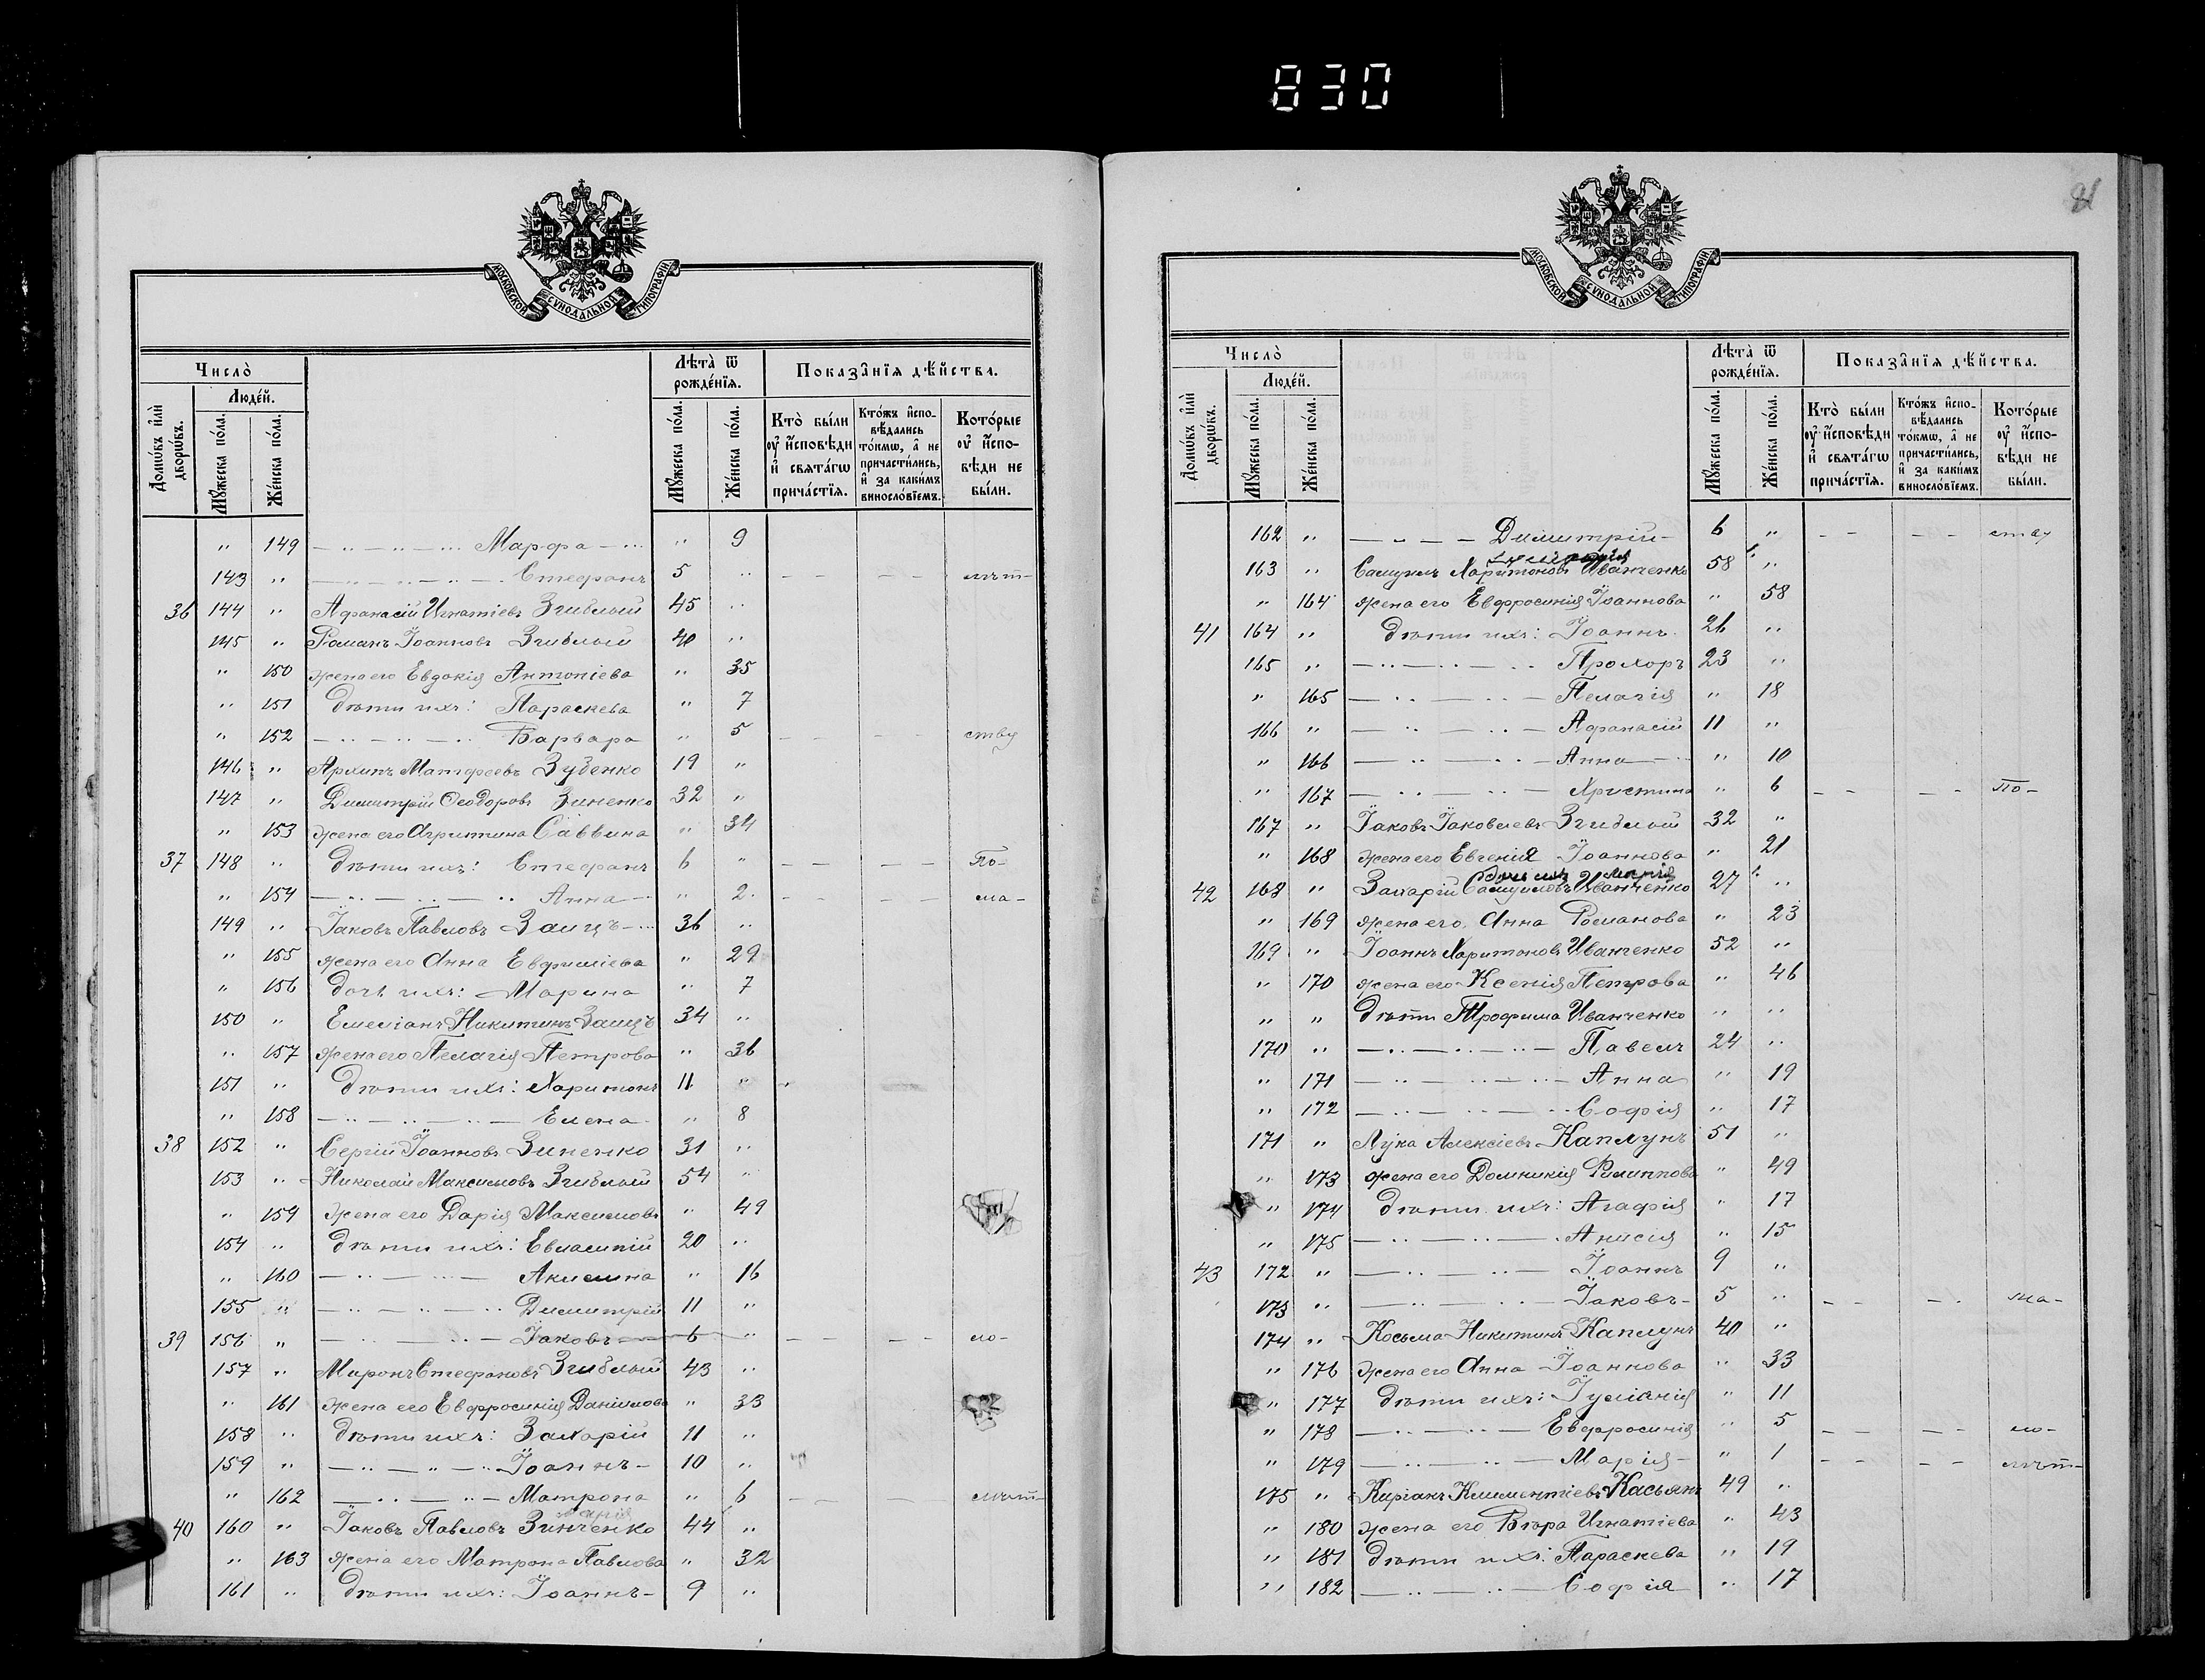 830
МОСКОВСКОЙ СѴНОДАЛЬНОЙ ТИПОГРАФІИ
Число̀
Люде́й.
Домѡ́въ и҆лѝ дворѡ́въ.
Мꙋ́жеска по́ла.
Же́нска по́ла.
Лѣта̀ ѿ рожде́нїѧ.
Мꙋ́жеска по́ла.
Же́нска по́ла.
Показа̂нїѧ дѣ́йства.
Кто̀ бы́ли оу҆ и҆́сповѣди и҆ свѧта́гѡ прича́стїѧ.
Кто́жъ и҆спо-вѣ́дались то́кмѡ, а҆ не причасти́лись, и҆ за каки́мъ виносло́вїемъ.
Кото́рые оу҆ и҆́спо-вѣди не бы́ли.
" 149 — " — " — Марфа — " 9
143 " — " — " — Стефанъ 5 " - - - - лѣт-
36 144 " Афанасій Игнатіевъ Згиблый 45 "
145 " Романъ Іоанновъ Згиблый 40 "
" 150 жена его Евдокія Антоніева " 35
" 151 Дѣти ихъ: Параскева " 7
" 152 — " — " — Варвара " 5 - - - - ству
146 " Архипъ Матфеевъ Зубенко 19 "
147 " Димитрій Ѳеодоровъ Зиненко 32 "
" 153 жена его Агрипина Саввина " 34
37 148 " Дѣти ихъ: Стефанъ 6 " - - - - По-
" 154 — " — " — Анна — " 2 - - - - ма-
149 " Іаковъ Павловъ Заицъ — 36 "
" 155 жена его Анна Евфиміева " 29
" 156 дочь ихъ: Марина " 7
150 " Емеліанъ Никитинъ Заицъ 34 "
" 157 жена его Пелагія Петрова " 36
151 " Дѣти ихъ: Харитонъ 11 "
" 158 — " — " — Елена " 8
38 152 " Сергій Іоанновъ Зиненко 31 "
153 " Николай Максимовъ Згиблый 54 "
" 159 жена его Дарія Максимов " 49
154 " Дѣти ихъ: Евлампій 20 "
" 160 — " — " — Акилина " 16
155 " — " — " — Димитрій 11 "
39 156 " — " — " — Іаковъ 6 " - - - - ло-
157 " Миронъ Стефановъ Згиблый 43 "
" 161 жена его Евфросинія Даніилова " 33
158 " Дѣти ихъ: Захарій 11 "
159 " — " — " — Іоаннъ — 10 "
" 162 — " — " — Матрона " 6 - - лѣт-
40 160 " Іаковъ Павловъ Зинченко 44 "
" 163 жена его Матрона Павлова " 32
161 " Дѣти ихъ: Іоаннъ — 9 "
МОСКОВСКОЙ СѴНОДАЛЬНОЙ ТИПОГРАФІИ
Число̀
Люде́й.
Домѡ́въ и҆лѝ дворѡ́въ.
Мꙋ́жеска по́ла.
Же́нска по́ла.
Лѣта̀ ѿ рожде́нїѧ.
Мꙋ́жеска по́ла.
Же́нска по́ла.
Показа̂нїѧ дѣ́йства.
Кто̀ бы́ли оу҆ и҆́сповѣди и҆ свѧта́гѡ прича́стїѧ.
Кто́жъ и҆спо-вѣ́дались то́кмѡ, а҆ не причасти́лись, и҆ за каки́мъ виносло́вїемъ.
Кото́рые оу҆ и҆́спо-вѣди не бы́ли.
162 " — " — — Димитрій — 6 " - - - - ству
163 " Самуилъ Харитоновъ Иванченко 58 "
" 164 жена его Евфросинія Іоаннова " 58
41 164 " Дѣти ихъ: Іоаннъ 26 "
165 " — " — " — Прохоръ 23 "
" 165 — " — " — Пелагія " 18
166 " — " — " — Афанасій 11 "
" 166 — " — " — Анна — " 10
" 167 — " — " — Христина " 6 - - - - По-
167 " Іаковъ Іаковлевъ Згиблый 32 "
" 168 жена его Евгенія Іоаннова " 21
42 168 " Захарій Самуиловъ Иванченко 27 "
" 169 жена его Анна Романова " 23
169 " Іоаннъ Харитоновъ Иванченко 52 "
" 170 жена его Ксенія Петрова " 46
" " Дѣти Трофима Иванченко " "
170 " — " — " — Павелъ 24 "
" 171 — " — " — Анна " 19
" 172 — " — " — Софія " 17
171 " Лука Алексіевъ Каплунъ 51 "
" 173 жена его Домникія Филиппова " 49
" 174 Дѣти ихъ: Агафія " 17
" 175 — " — " — Анисія " 15
43 172 " — " — " — Іоаннъ 9 "
173 " — " — " — Іаковъ — 5 " - - - - ма-
174 " Косьма Никитинъ Каплунъ 40 "
" 176 жена его Анна Іоаннова " 33
" 177 Дѣти ихъ: Іуліанія " 11
" 178 — " — " — Евфросинія " 5 - - - - ло-
" 179 — " — " — Марія — " 1 - - - - лѣт-
175 " Киріакъ Климентіевъ Касьянъ 49 "
" 180 жена его Вѣра Игнатіева " 43
" 181 Дѣти ихъ: Параскева " 19
" 182 — " — " — Софія " 17